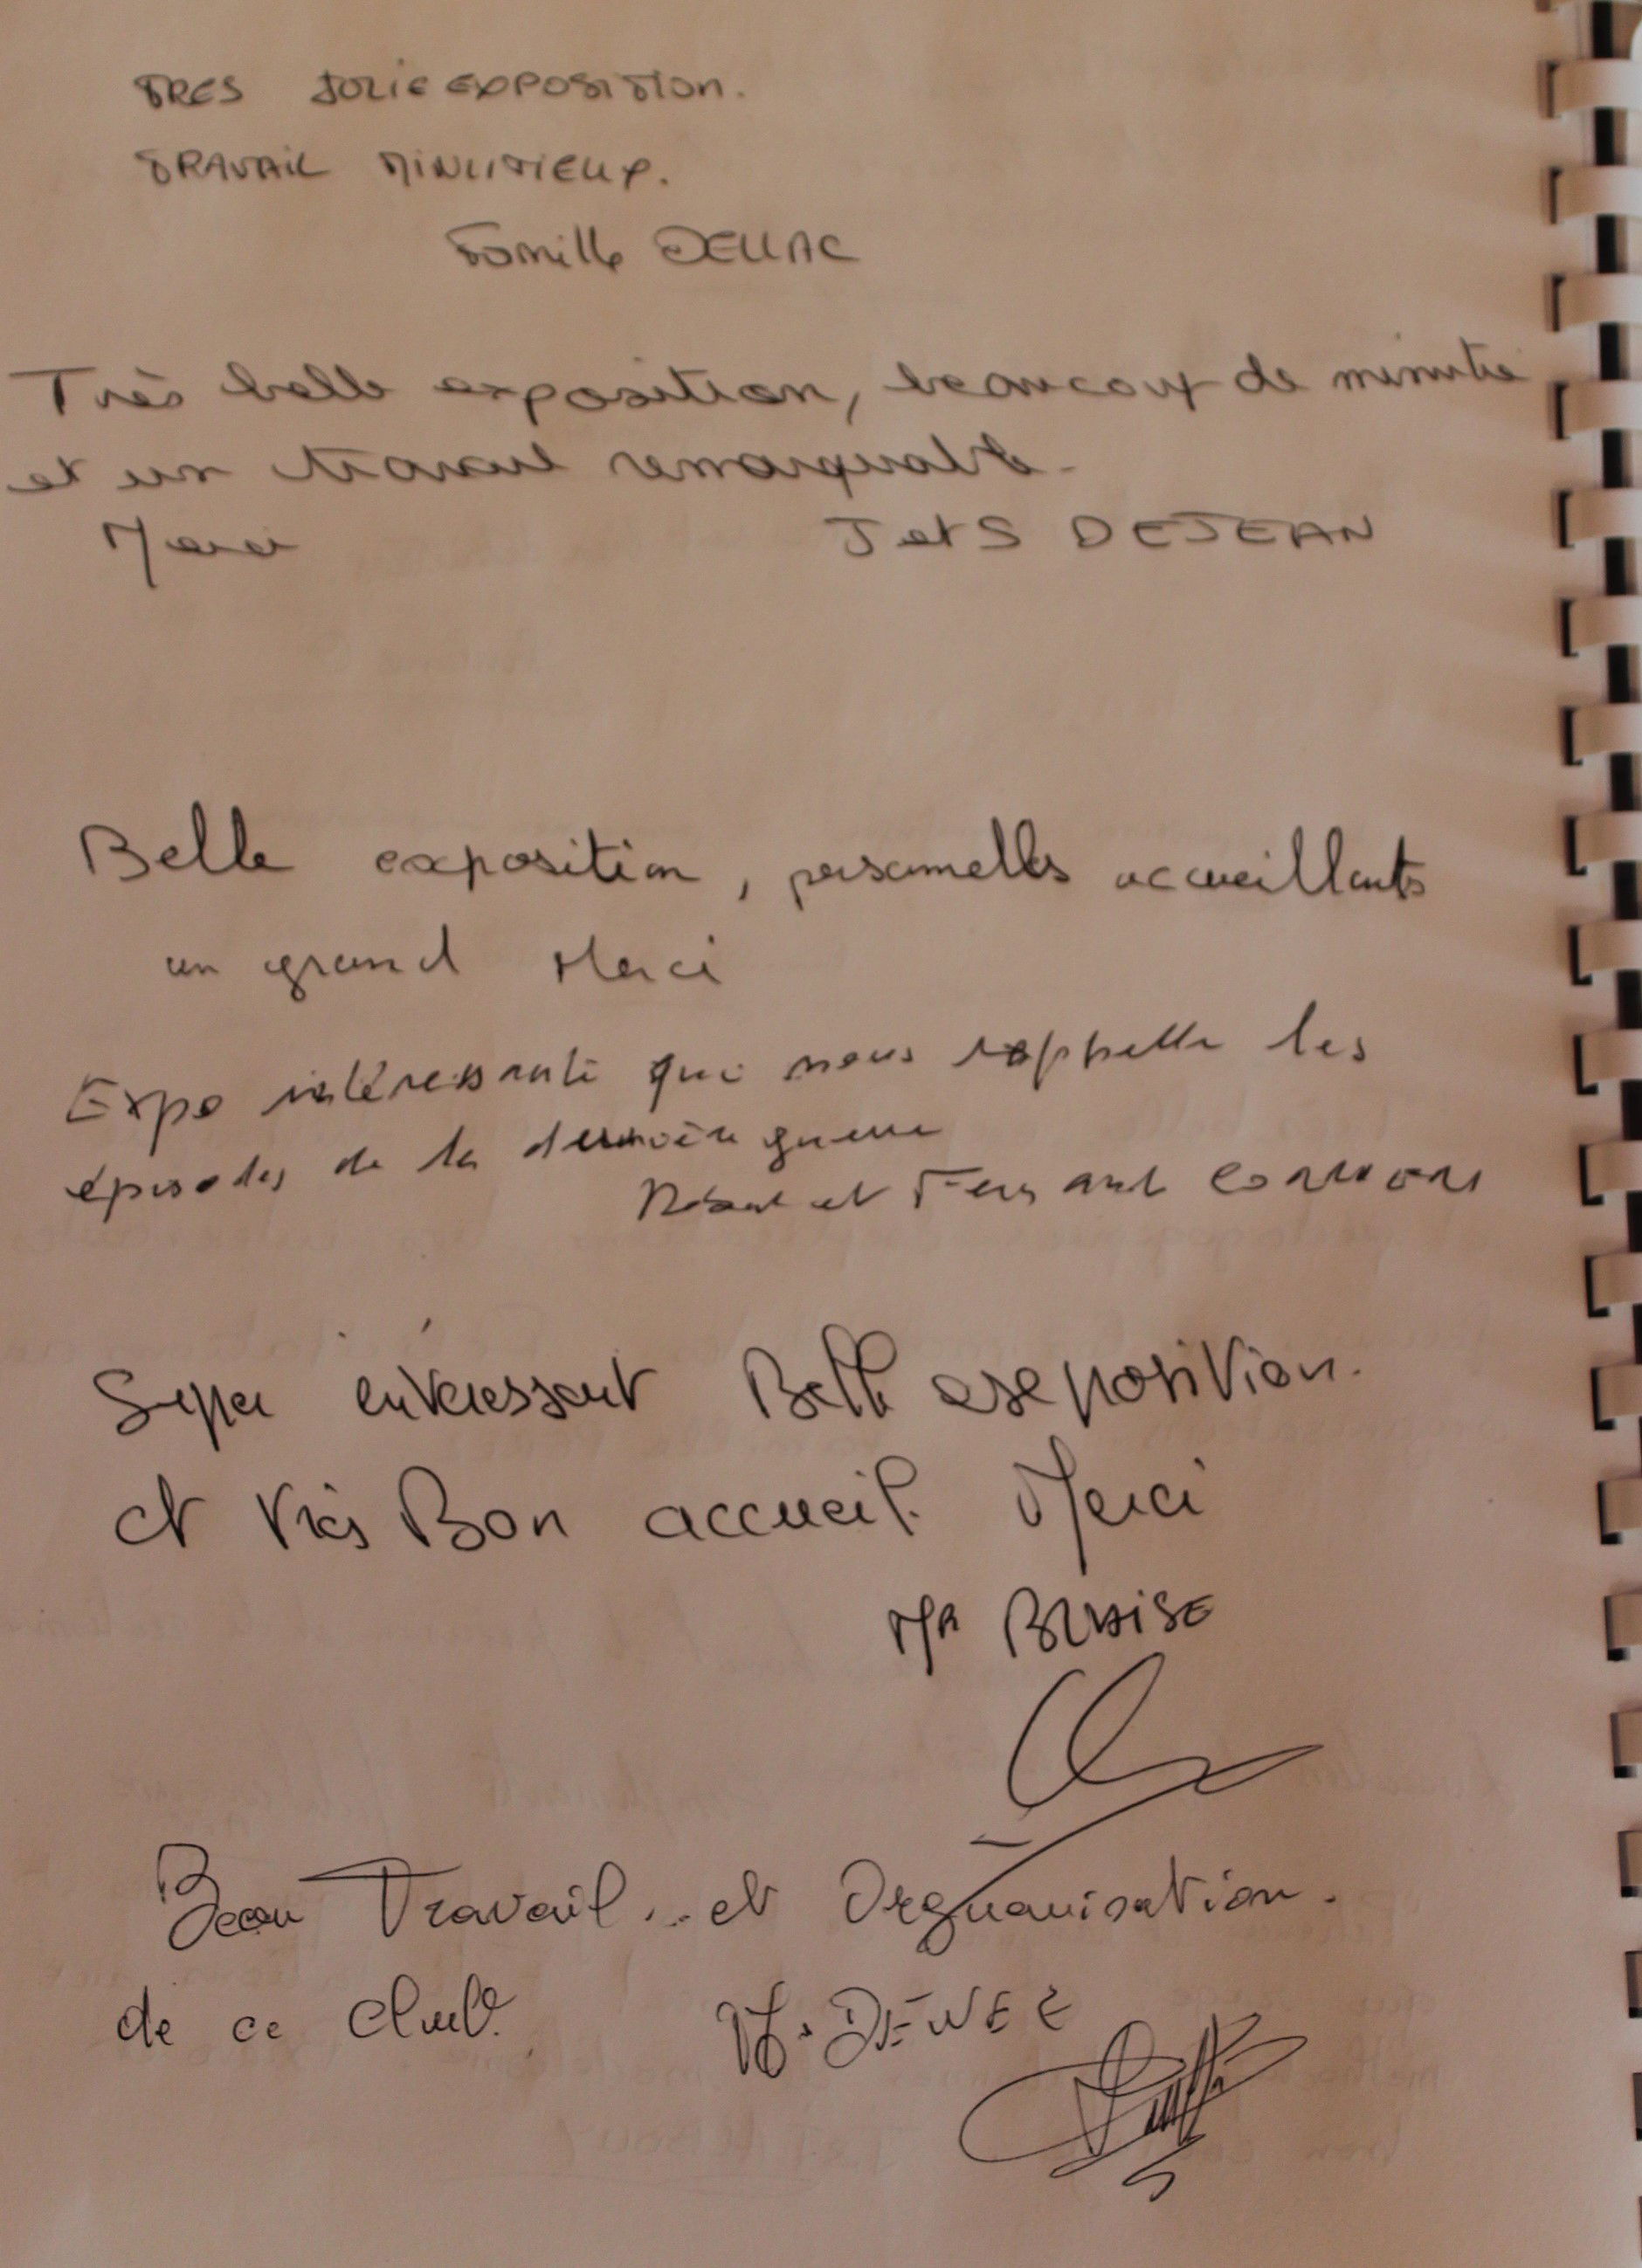 TRES JOLIE EXPOSITION.
TRAVAIL MINUTIEUX.
Famille DELLAC
Très belle exposition, beaucoup de minutie
et un travail remarquable.
Merci J et S DEJEAN
Belle exposition, personnelles accueillants
un grand Merci
Expo intéressante qui nous rappelle les
épisodes de la dernière guerre
et Fernand
Super intéressant Belle exeposition.
et très Bon accueil. Merci
Mr BLAISE
Beau Travail... et Orguanisation.
de ce club. M. DENEE